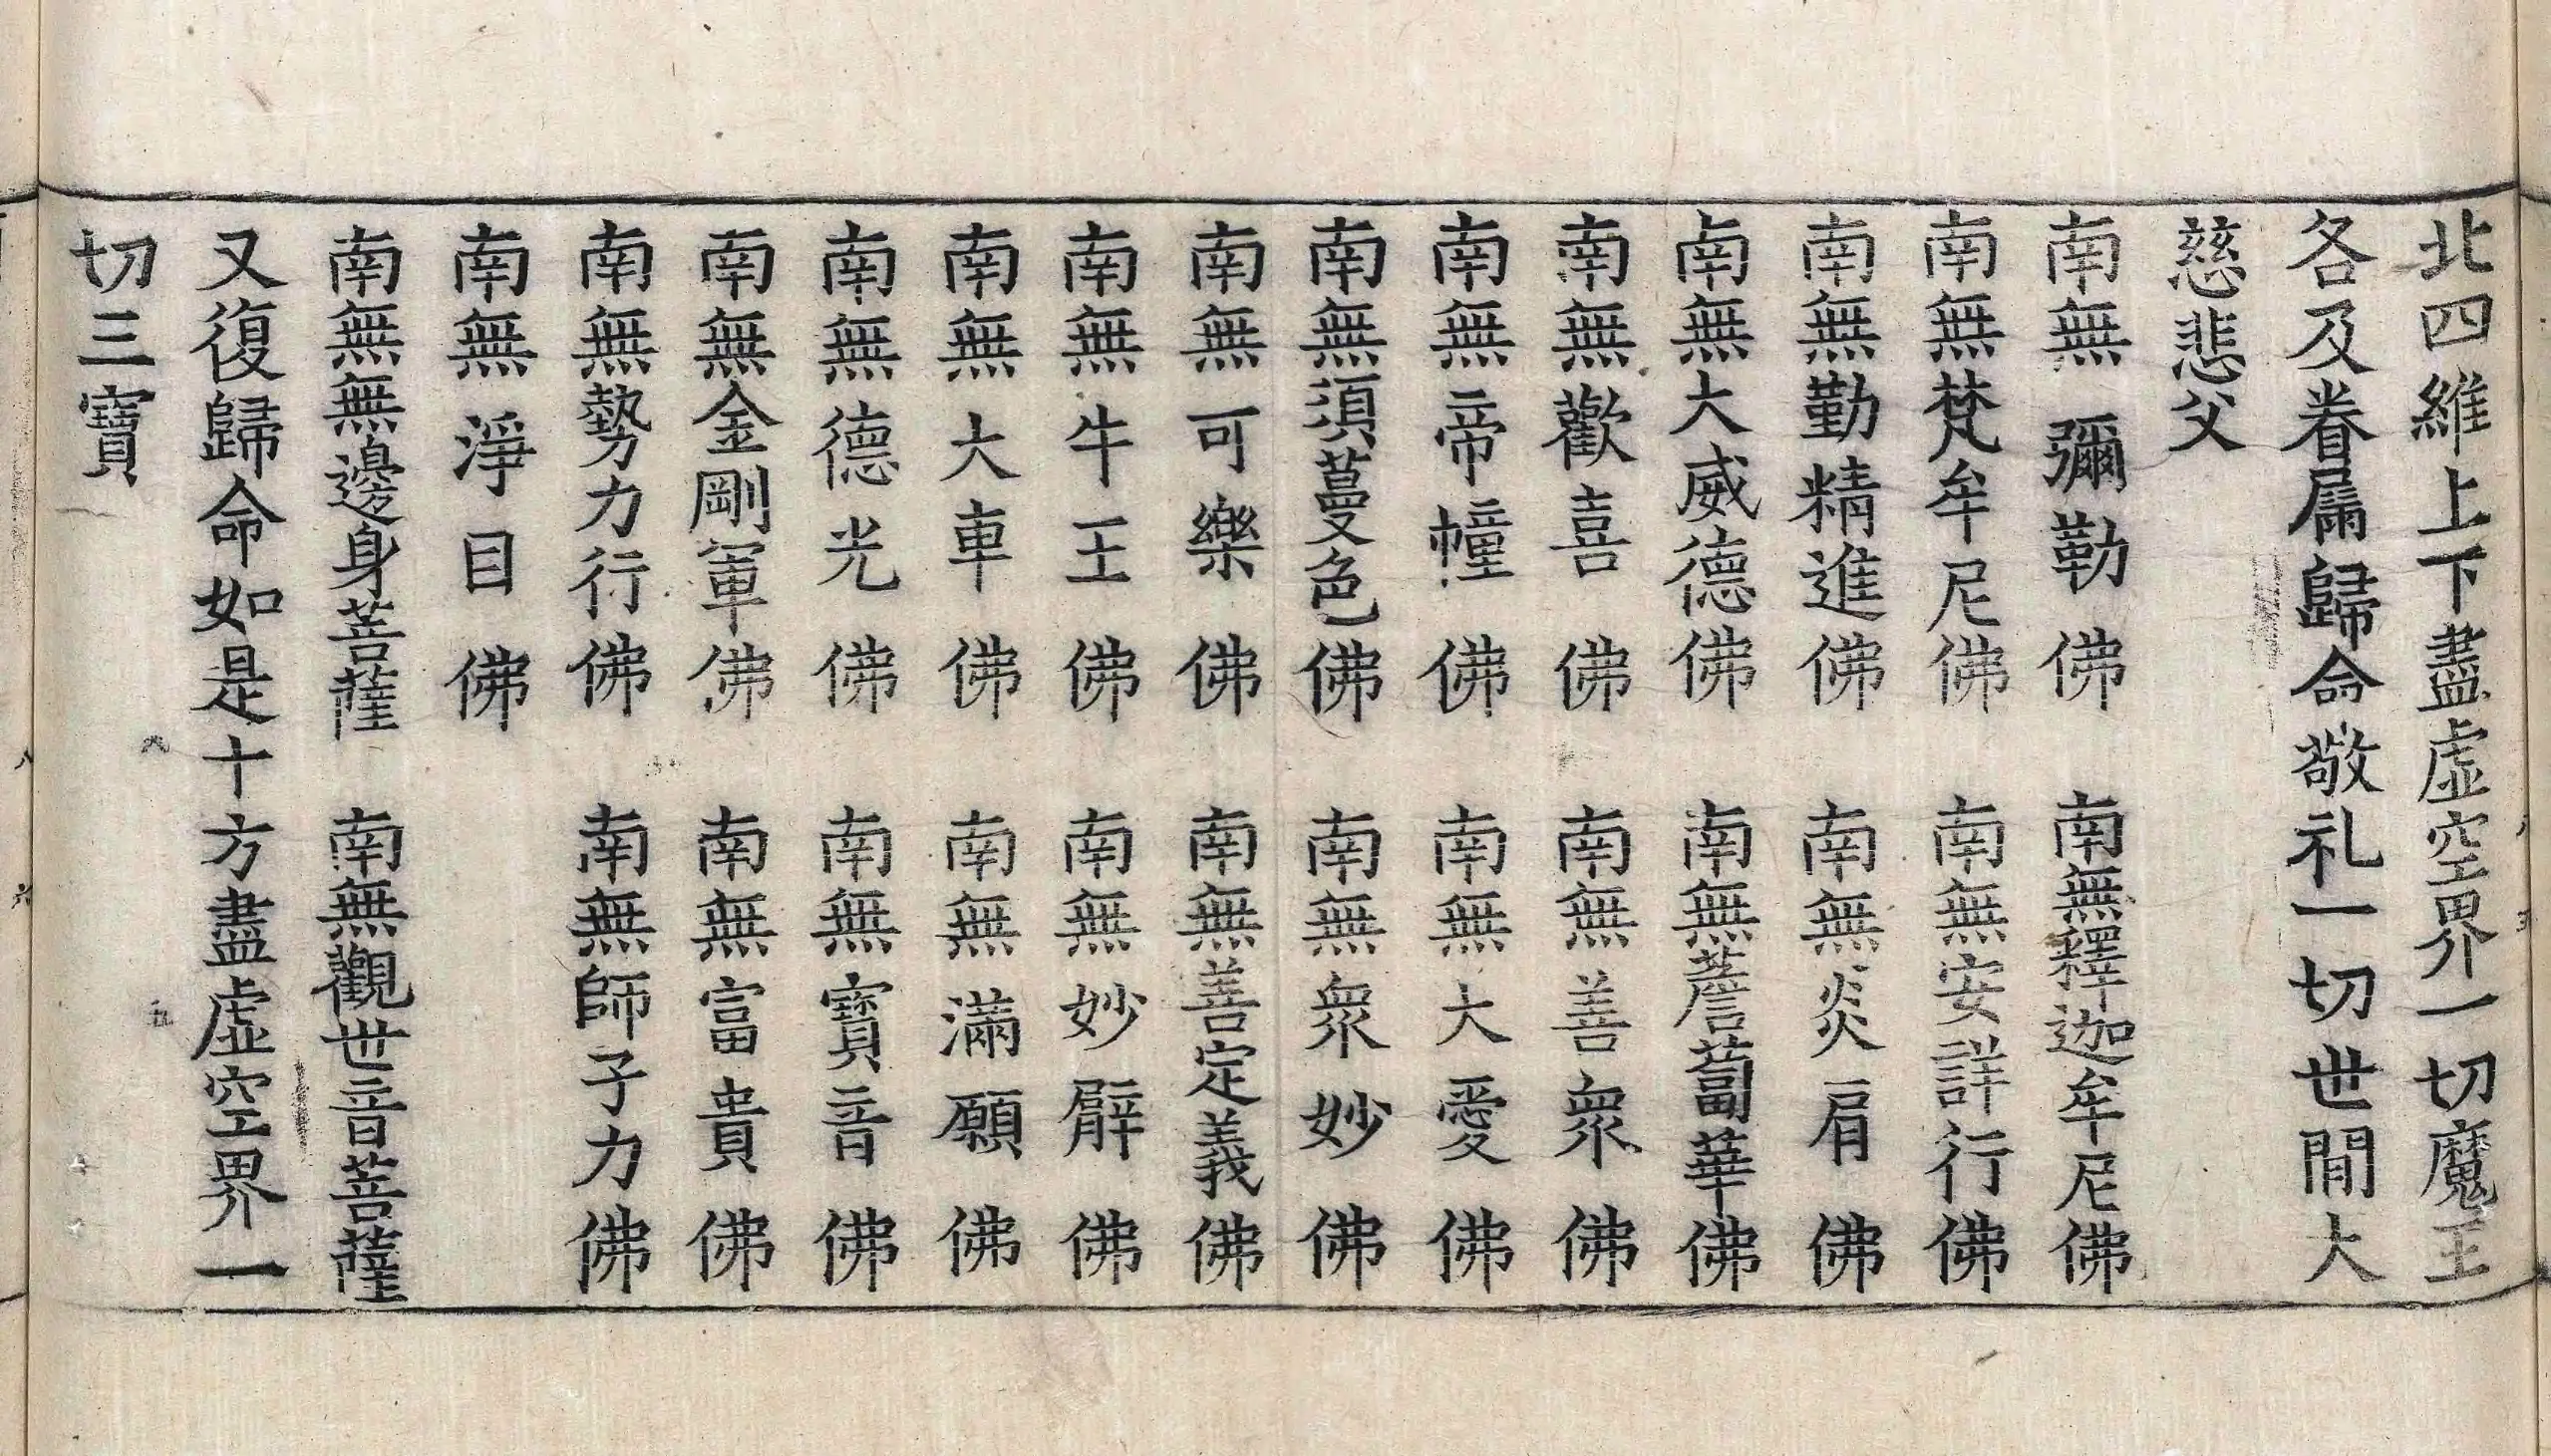 北四維上下盡虛空界一切魔王
各及眷屬歸命敬礼一切世間大
慈悲父
南無彌勒佛 南無釋迦牟尼佛
南無梵牟尼佛 南無安詳行佛
南無勤精進佛 南無炎肩佛
南無大威德佛 南無薝蔔華佛
南無歡喜佛 南無善衆佛
南無帝幢佛 南無大愛佛
南無須蔓色佛 南無衆妙佛
南無可樂佛 南無善定義佛
南無牛王佛 南無妙臂佛
南無大車佛 南無滿願佛
南無德光佛 南無寶音佛
南無金剛軍佛 南無富貴佛
南無勢力行佛 南無師子力佛
南無淨目佛
南無無邊身菩薩 南無觀世音菩薩
又復歸命如是十方盡虛空界一
切三寶